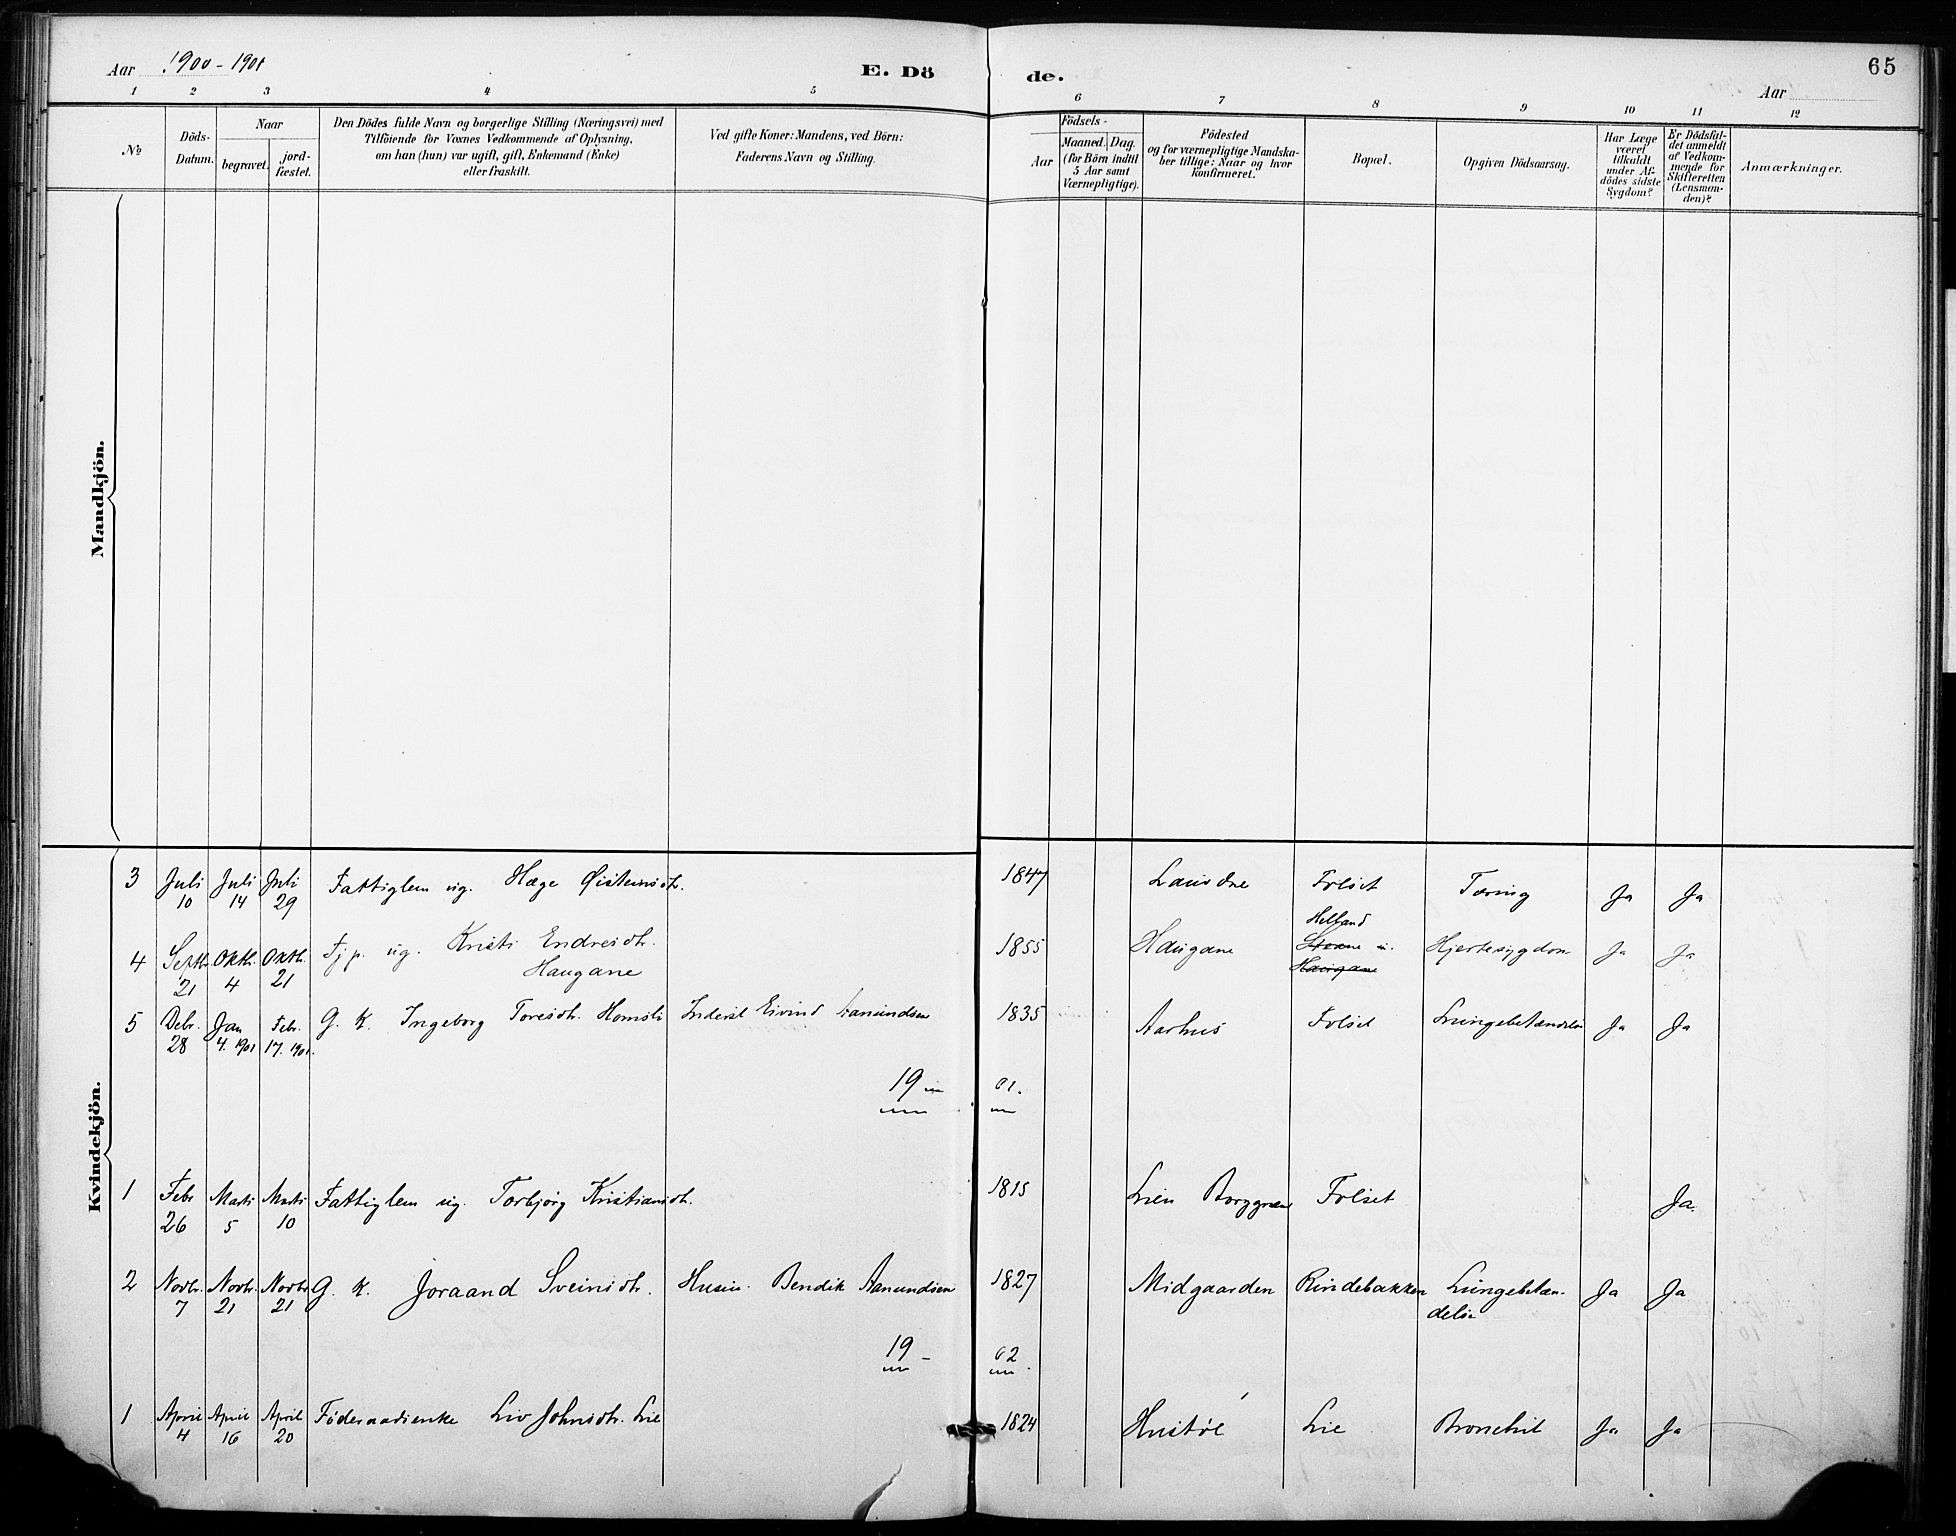 Aar 1900-1901
E. Dö
de.
65
Aar
1 2 3 4 5 6 7 8 9 10 11 12
No
Döds-
Datum.
Naar
begravet.
jord-
fæstet.
Den Dödes fulde Navn og borgerlige Stilling (Næringsvei) med
Tilföiende for Voxnes Vedkommende af Oplysning,
om han (hun) var ugift, gift, Enkemand (Enke)
eller fraskilt.
Ved gifte Koner: Mandens, ved Börn:
Faderens Navn og Stilling.
Födsels-
Aar
Maaned. Dag.
(for Börn indtil
5 Aar samt
Værnepligtige).
Födested
og for værnepligtige Mandska-
ber tillige: Naar og hvor
konfirmeret.
Bopæl.
Opgiven Dödsaarsag.
Har Læge
været
tilkaldt
under Af-
dödes sidste
Sygdom?
Er Dödsfal-
det anmeldt
af Vedkom-
mende for
Skifteretten
(Lensman-
den)?
Anmærkninger.
Mandkjön.
Kvindekjön.
3 Juli 10 Juli 14 Juli 29 Fattiglem ug. Hæge Øisteinsdtr. 1847 Folset Tæring Ja Ja
4 Septbr. 21 Oktbr. 4 Oktbr. 21 Tjp. ug. Kristi Endresdtr. 1855 Haugane Helland Hjertesygdom Ja Ja
Haugane Haugane
5 Debr. 28 Jan 4. 1901 Febr. 17. 1901. G. K. Ingeborg Toresdtr. Homsli Inderst Eivind Aanundsen 1835 Aarhus Folset Lungebetændelse Ja Ja
19 01.
1 Febr 26 Marts 5 Marts 10 Fattiglem ug. Torbjørg Kristiansdtr. 1815 Lien Folset Ja.
2 Novbr. 7 Novbr. 21 Novbr 21 G. K. Joraand Sveinsdtr. Husm. Bendik Aanundsen 1827 Midgaarden Rindebakken Lungebetæn-
delse Ja Ja
19 - 02
1 April 4 April 16 April 20 Føderaadsenke Liv Johnsdtr. Lie 1824 Hustøl Lie Bronchit Ja Ja